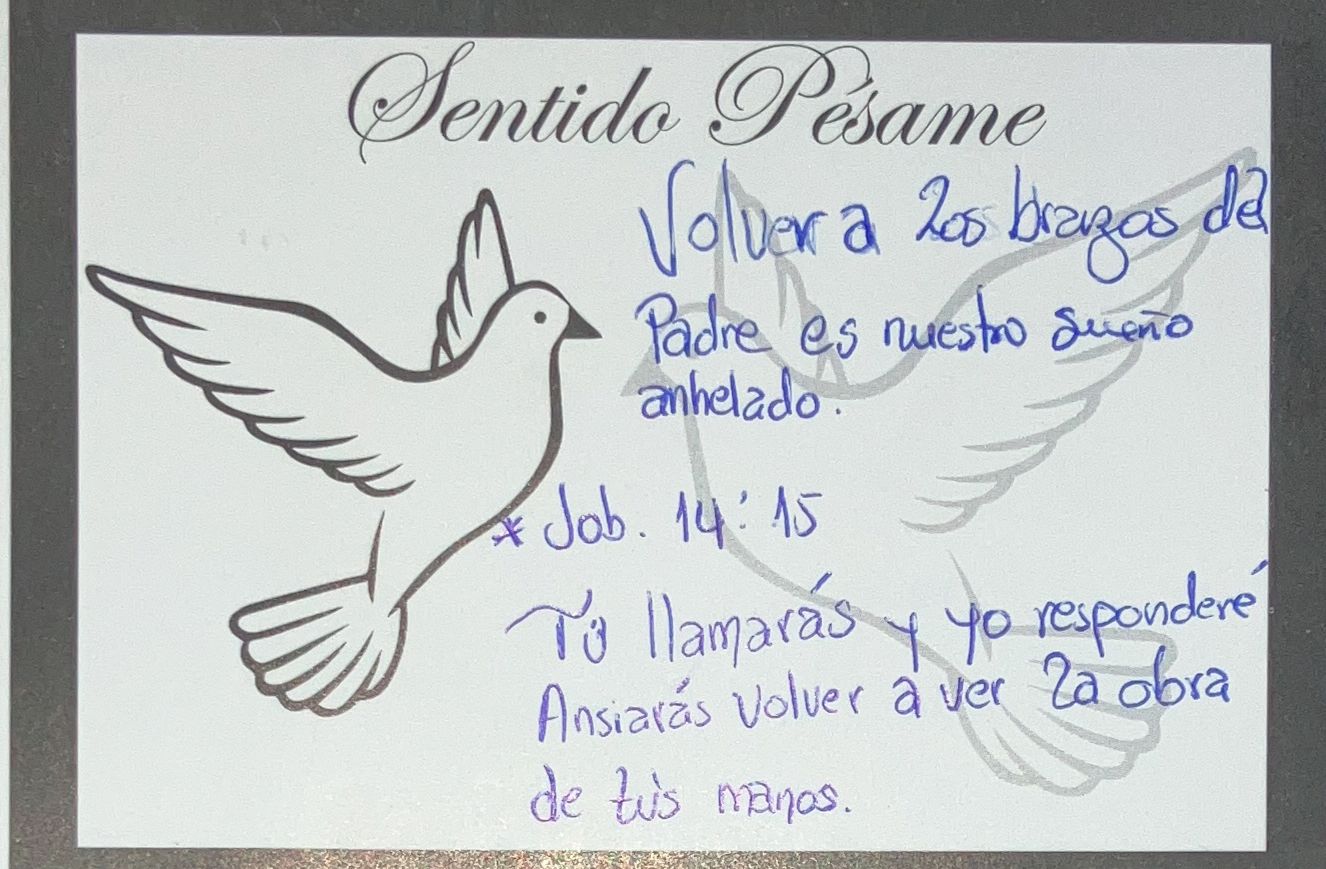 Sentido Pésame
Volver a los brazos del
Padre es nuestro sueño
anhelado.
* Job. 14:15
Tú llamarás y yo responderé
Ansiarás volver a ver la obra
de tus manos.